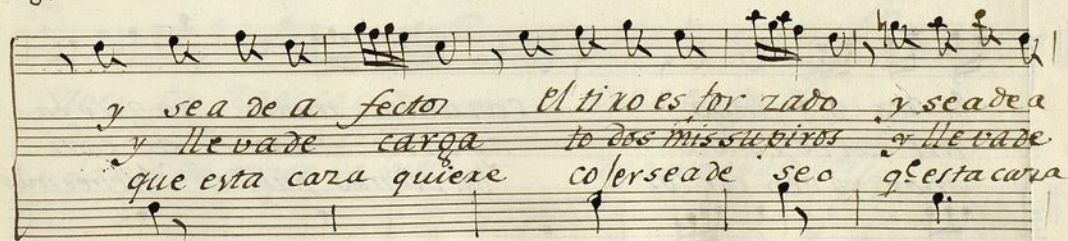 y sea de a fector el tiro es for zado y sea de a
y lleva de carga to dos mis supiros y lleva de
que esta caza quiere coserseade seo q.e esta caza